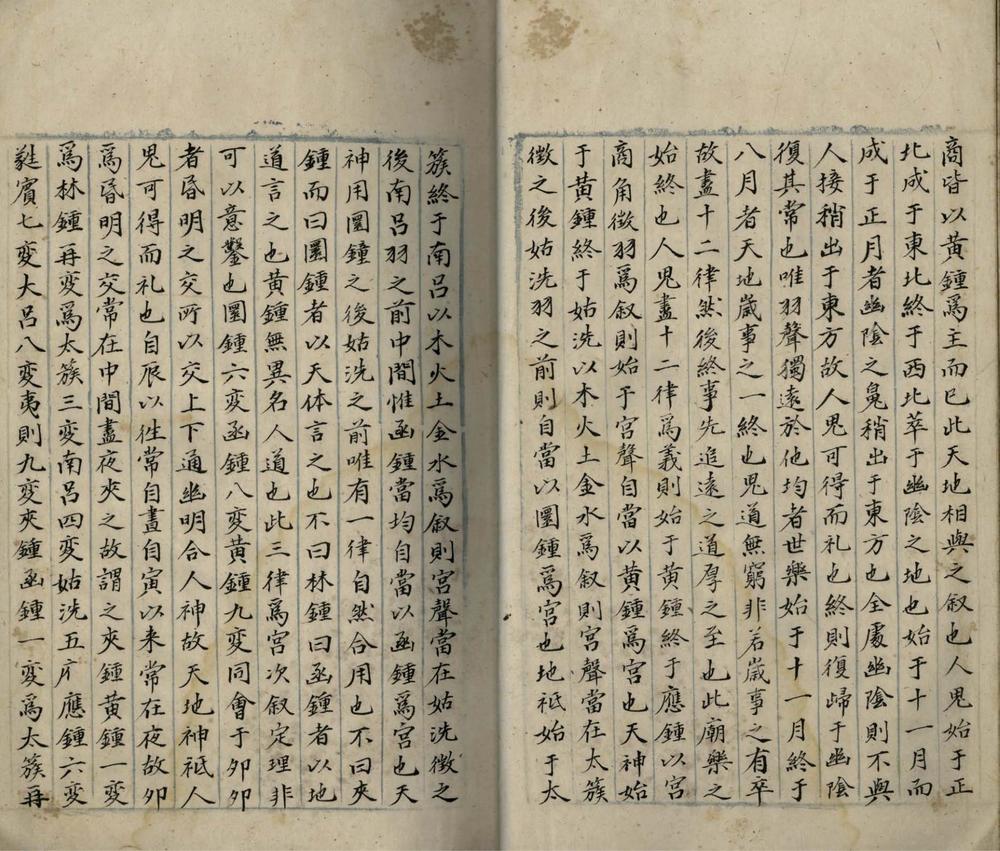 商皆以黃鍾爲主而已此天地相與之叙也人鬼始于正
北成于東北終于西北萃于幽陰之地也始于十一月而
成于正月者幽陰之鬼稍出于東方也全處幽陰則不與
人接稍出于東方故人鬼可得而礼也終則復歸于幽陰
復其常也唯羽聲獨遠於他均者世樂始于十一月終于
八月者天地歲事之一終也鬼道無窮非若歲事之有卒
故盡十二律然後終事先追遠之道厚之至也此廟樂之
始終也人鬼盡十二律爲義則始于黃鍾終于應鍾以宮
商角徵羽爲叙則始于宮聲自當以黃鍾爲宮也天神始
于黃鍾終于姑洗以木火土金水爲叙則宮聲當在太簇
徵之後姑洗羽之前則自當以圜鍾爲宮也地祗始于太
簇終于南呂以木火土金水爲叙則宮聲當在姑洗徵之
後南呂羽之前中間惟函鍾當均自當以函鍾爲宮也天
神用圜鐘之後姑洗之前唯有一律自然合用也不曰夾
鍾而曰圜鍾者以天体言之也不曰林鍾曰函鍾者以地
道言之也黃鍾無異名人道也此三律爲宮次叙定理非
可以意鑿也圜鍾六变函鍾八变黃鍾九变同會于卯卯
者昏明之交所以交上下通幽明合人神故天地神祗人
鬼可得而礼也自辰以徃常自晝自寅以来常在夜故卯
爲昏明之交常在中間晝夜夾之故謂之夾鍾黃鍾一变
爲林鍾再变爲太簇三变南呂四变姑洗五疒應鍾六变
蕤賓七变大呂八变夷則九变夾鍾函鍾一变爲太簇再